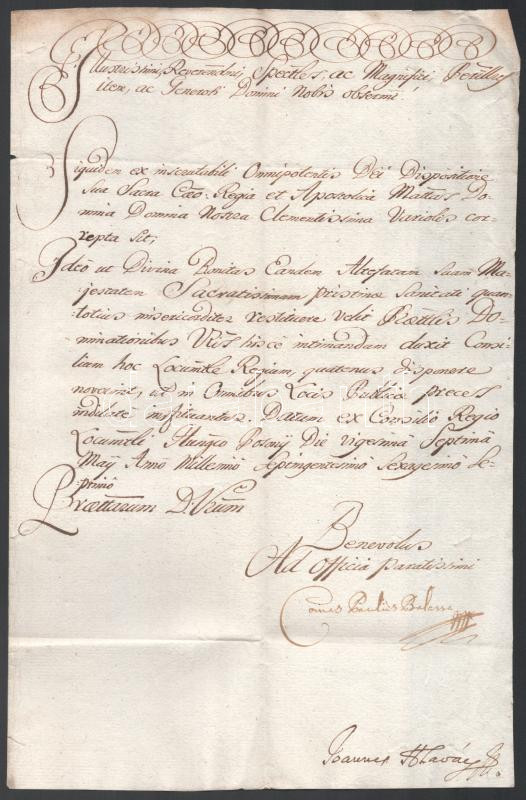 Illustrissimi, Reverendmi, Spectles, ac Magnifici Perillus
tres, ac Generosi Domini Nobis obsermi!
Siquidem ex inscrutabili Omnipotentis Dei Dispositione
Sua Sacra Cæo-Regia et Apostolica Mattas Do-
mina Domina Nostra Clementissima Variolis cor-
repta sit;
Ideo ut Divina Bonitas Eandem Altefatam Suam Ma-
jestatem Sacratissimam, pristinæ Sanitati quan-
totius misericorditer restituere velit
minationibus Vris hisce intimandum duxit Consi-
lium hoc Locumtle Regium, quatenus disponere
noverint, ut in Omnibus Locis Publicæ preces
instituantur. Datum ex Consilio Regio
Locumtli Hungco Posonij Die Vigesima Septima
Maij Anno Millesimo Septingentesimo Sexagesimo Se-
ptimo
Prættarum D. Vrarum
Benevolus
Ad officia paratissimi
Comes Paulus Balassa
Joannes Hlavács